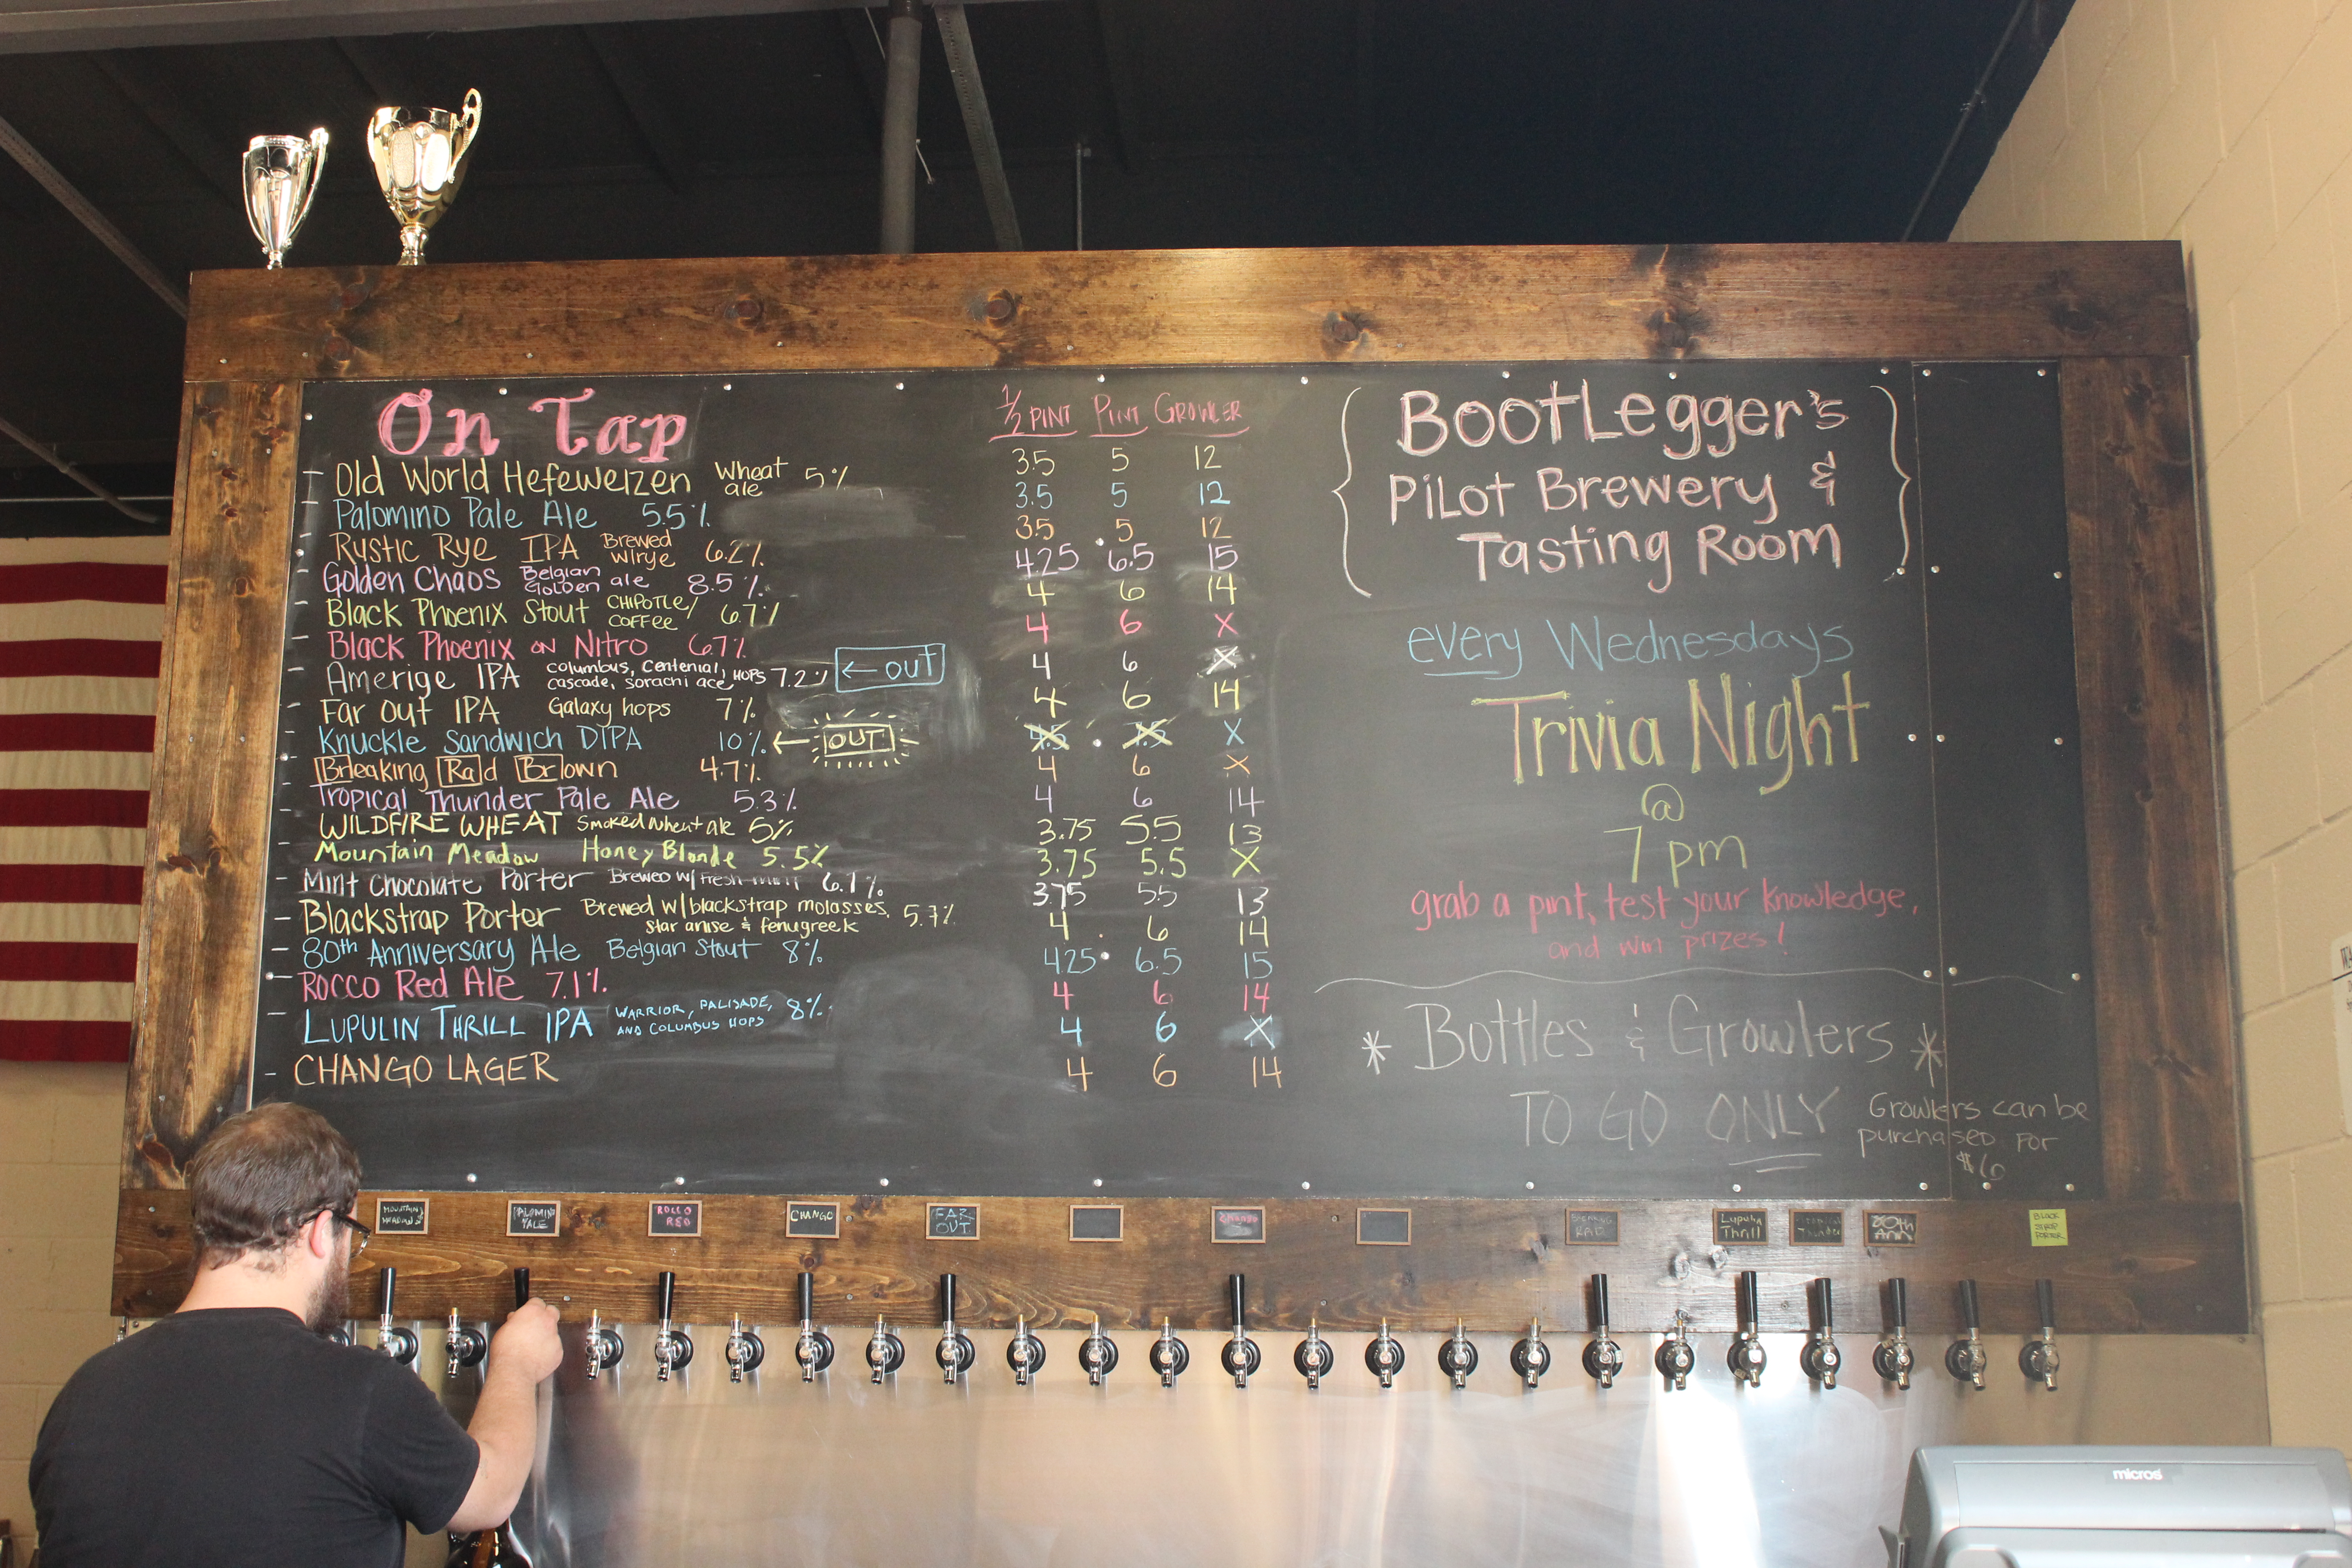 On Tap
1/2 PINT PINT GROWLER
Old World Hefeweizen Wheat ale 5% 3.5 5 12
Palomino Pale Ale 5.5% 3.5 5 12
Rystic Rye IPA Brewed w/rye 6.2% 3.5 5 12
Golden Chaos Belgian Golden ale 8.5% 4.25 6.5 15
Black Phoenix Stout CHIPOTLE/COFFEE 6.7% 4 6 14
Black Phoenix on Nitro 6.7% 4 6 X
Amerige IPA columbus, centenial, cascade, sorachi ace HOPS 7.2% ← OUT 4 6 X
Far Out IPA Galaxy hops 7% 4 6 14
Knuckle Sandwich DIPA 10% ← OUT X
Breaking Rad Brown 4.7% 4 6 X
Tropical Thunder Pale Ale 5.3% 4 6 14
WILDFIRE WHEAT Smoked wheat ale 5% 3.75 5.5 13
Mountain Meadow Honey Blonde 5.5% 3.75 5.5 X
Mint Chocolate Porter Brewed w/ Fresh mint 6.1% 3.75 5.5 13
Blackstrap Porter Brewed w/blackstrap molasses, star anise & fenugreek 5.7% 4 6 14
80th Anniversary Ale Belgian Stout 8% 4.25 6.5 15
Rocco Red Ale 7.1% 4 6 14
LUPULIN THRILL IPA WARRIOR, PALISADE, AND COLUMBUS HOPS 8% 4 6 X
CHANGO LAGER 4 6 14
BootLegger's
PiLot Brewery &
Tasting Room
every Wednesdays
Trivia Night
@
7 pm
grab a pint, test your knowledge,
and win prizes!
* Bottles & Growlers *
TO GO ONLY
Growlers can be
purchased for
$6
MOUNTAIN MEADOW
PALOMINO ALE
ROCCO RED
CHANGO
FAR OUT
BREAKING RAD
Lupulin Thrill
Tropical Thunder
80th ANN
BLACK STRAP PORTER
micros